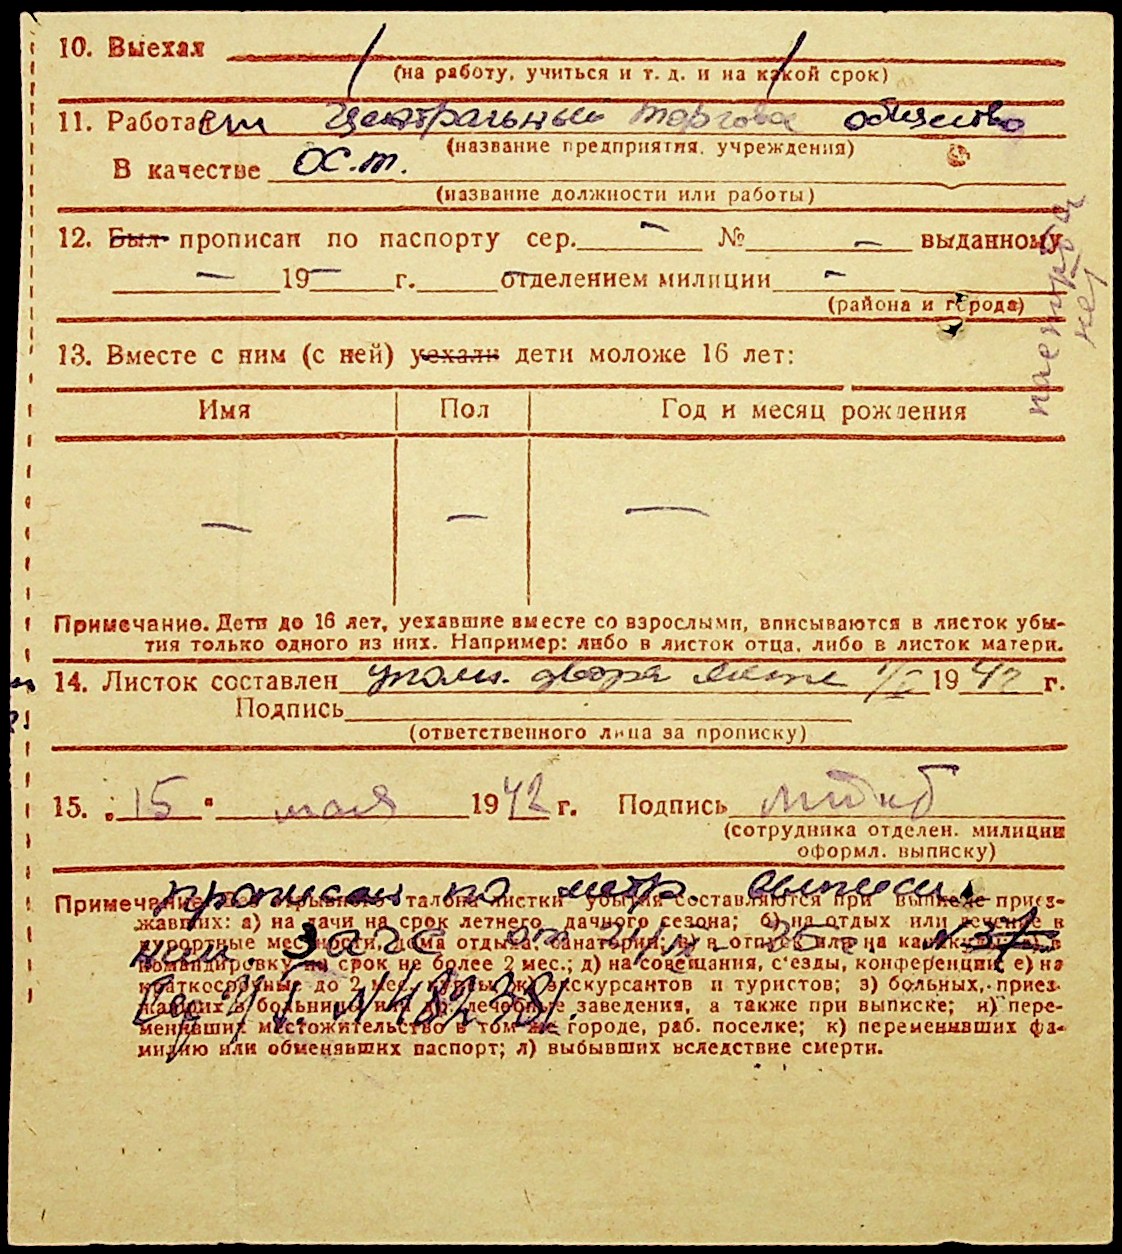 10. Выехал
(на работу, учиться и т. д. и на какой срок)
11. Работает Центральный торгово общество
(название предприятия, учреждения)
В качестве ос.т.
(название должности или работы)
12. Был прописан по паспорту сер. — № — выданному
— 19— г. — отделением милиции —
(района и города)
13. Вместе с ним (с ней) уехали дети моложе 16 лет:
Имя Пол Год и месяц рождения
— — —
паспорта нет
Примечание. Дети до 16 лет, уехавшие вместе со взрослыми, вписываются в листок убы-
тия только одного из них. Например: либо в листок отца, либо в листок матери.
14. Листок составлен 1942 г.
Подпись
(ответственного лица за прописку)
15. „15" мая 1942 г. Подпись
(сотрудника отделен. милиции
оформл. выписку)
прописан по метр. выписи
Примечание. талона листки убытия составляются при выезде приез-
жавших: а) на дачи на срок летнего дачного сезона; б) на отдых или лечение в
курортные местности, дома отдыха, санатории; в) в отпуск или на каникулы; г) в
командировку на срок не более 2 мес.; д) на совещания, с'езды, конференции; е) на
краткосрочные до 2 мес. экскурсантов и туристов; з) больных, приез-
жавших в больницы или лечебные заведения, а также при выписке; и) пере-
менивших местожительство в том же городе, раб. поселке; к) переменивших фа-
милию или обменявших паспорт; л) выбывших вследствие смерти.